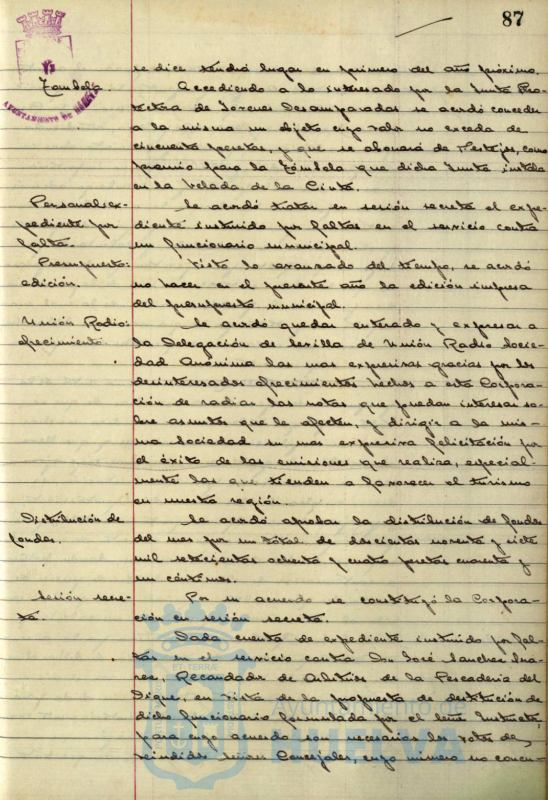 87
AYUNTAMIENTO DE HUELVA
se dice tendrá lugar en primero del año próximo.
Tómbola
Accediendo a lo interesado por la Junta Pro-
tectora de Jovenes Desamparados se acordó conceder
a la misma un objeto cuyo valor no exceda de
cincuenta pesetas, y que se abonará de Festejos, como
premio para la Tómbola que dicha Junta instala
en la Velada de la Cinta.
Personal: ex-
pediente por
falta.
Se acordó tratar en sesión secreta el expe-
diente instruido por faltas en el servicio contra
un funcionario municipal.
Presupuesto:
edición.
Visto lo avanzado del tiempo, se acordó
no hacer en el presente año la edición impresa
del presupuesto municipal.
Unión Radio:
ofrecimiento
Se acordó quedar enterado y expresar a
la Delegación de Sevilla de Unión Radio Socie-
dad Anónima las mas expresivas gracias por los
desinteresados ofrecimientos hechos a esta Corpora-
ción de radiar las notas que puedan interesar so-
bre asuntos que le afecten, y dirigir a la mis-
ma Sociedad su mas expresiva felicitación por
el éxito de las emisiones que realiza, especial-
mente las que tienden a favorecer el turismo
en nuestra región.
Distribución de
fondos.
Se acordó aprobar la distribución de fondos
del mes por un total de doscientos noventa y siete
mil setecientas ochenta y cuatro pesetas cuarenta y
un céntimos.
Sesión secre-
ta.
Por su acuerdo se constituyó la Corpora-
ción en sesión secreta.
Dada cuenta de expediente instruido por fal-
tas en el servicio contra Don José Sanchez
Recaudador de Arbitrios de la Pescadería del
Dique, en vista de la propuesta de destitución de
dicho funcionario formulada por el Señor Instructor,
para cuyo acuerdo son necesarios los votos de
veintidos señores Concejales, cuyo número no concu-
Ayuntamiento de
HUELVA